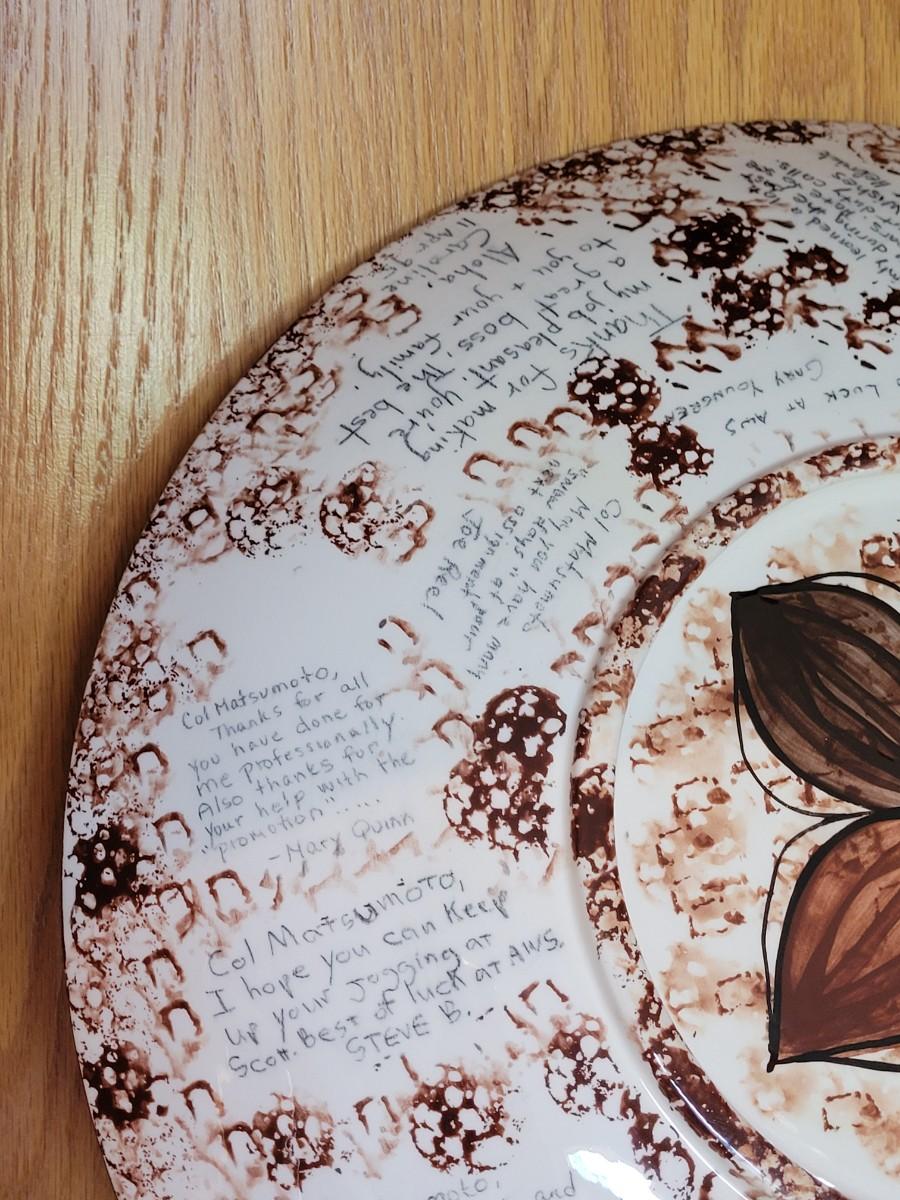 Col Matsumoto,
Thanks for all
you have done for
me professionally.
Also thanks for
your help with the
"promotion".....
-Mary Quinn
Col Matsumoto,
I hope you can Keep
up your Jogging at
Scott. Best of luck at AWS.
STEVE B.
Thanks for making
my job pleasant. You're
a great boss. The best
to you + your family.
Aloha,
Caroline
Col Matsumoto
May you have many
"snow days" at your
next assignment
Joe Reel
LUCK AT AWS
GARY
learned
duty calls.
wishes
moto,
and